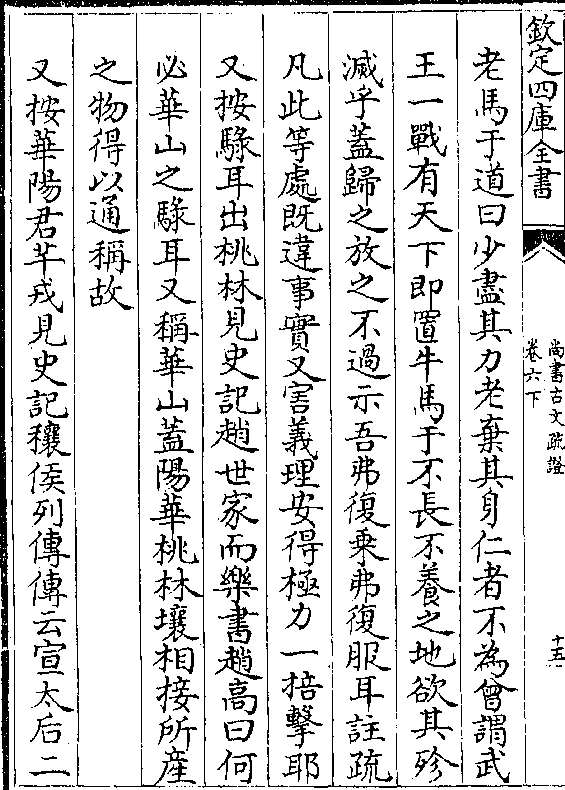 欽定四庫全書
尚書古文疏證
卷六下
十五
老馬于道曰少盡其力老棄其身仁者不為曾謂武
王一戰有天下即置牛馬于不長不養之地欲其殄
滅乎蓋歸之放之不過示吾弗復乗弗復服耳註疏
凡此等處既違事實又害義理安得極力一掊擊耶
又按騄耳出桃林見史記趙世家而樂書趙髙曰何
必華山之騄耳又稱華山蓋陽華桃林壤相接所産
之物得以通稱故
又按華陽君芊戎見史記穰侯列傳傳云宣太后二